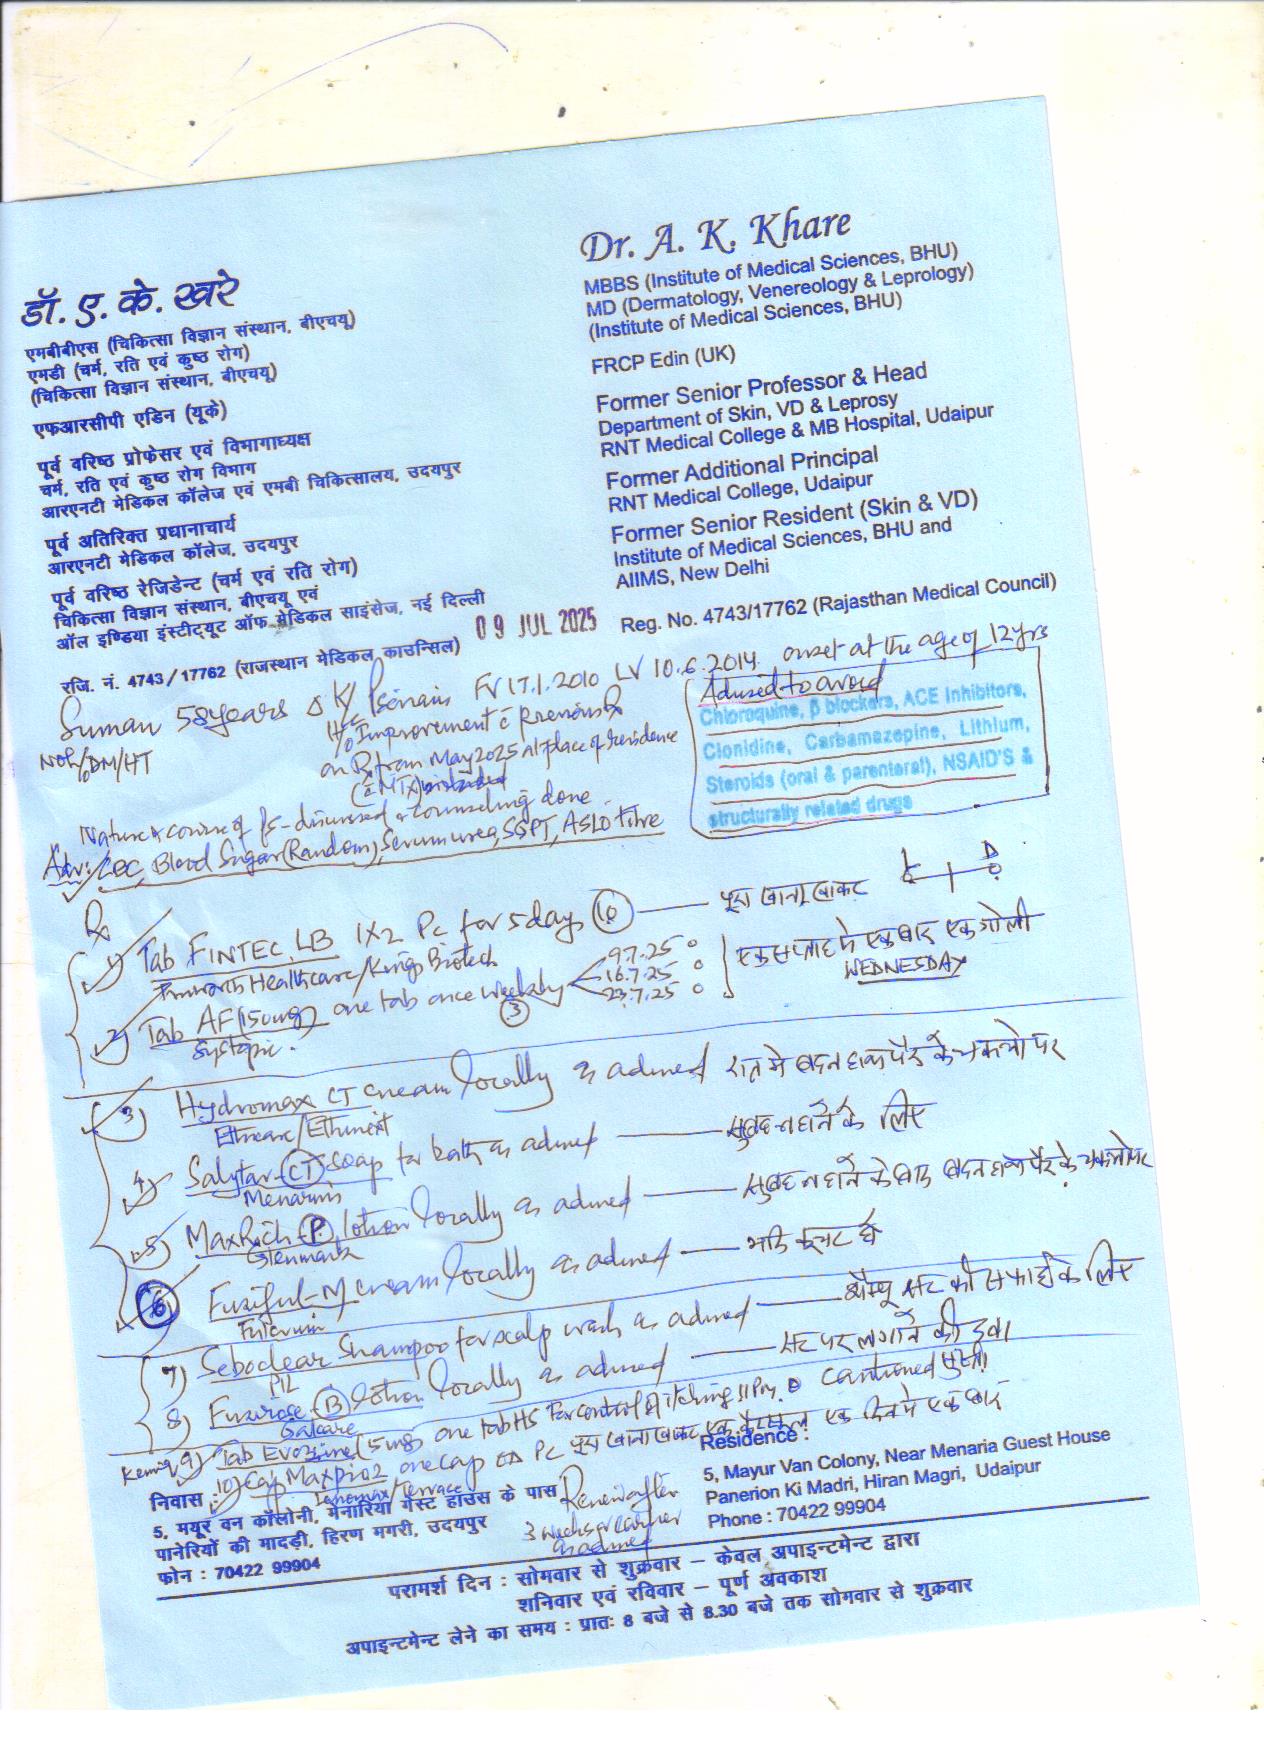 Dr. A. K. Khare
MBBS (Institute of Medical Sciences, BHU)
MD (Dermatology, Venereology & Leprology)
(Institute of Medical Sciences, BHU)
FRCP Edin (UK)
Former Senior Professor & Head
Department of Skin, VD & Leprosy
RNT Medical College & MB Hospital, Udaipur
Former Additional Principal
RNT Medical College, Udaipur
Former Senior Resident (Skin & VD)
Institute of Medical Sciences, BHU and
AIIMS, New Delhi
Reg. No. 4743/17762 (Rajasthan Medical Council)
डॉ. ए. के. खरे
एमबीबीएस (चिकित्सा विज्ञान संस्थान, बीएचयू)
एमडी (चर्म, रति एवं कुष्ठ रोग)
(चिकित्सा विज्ञान संस्थान, बीएचयू)
एफआरसीपी एडिन (यूके)
पूर्व वरिष्ठ प्रोफेसर एवं विभागाध्यक्ष
चर्म, रति एवं कुष्ठ रोग विभाग
आरएनटी मेडिकल कॉलेज एवं एमबी चिकित्सालय, उदयपुर
पूर्व अतिरिक्त प्रधानाचार्य
आरएनटी मेडिकल कॉलेज, उदयपुर
पूर्व वरिष्ठ रेजिडेन्ट (चर्म एवं रति रोग)
चिकित्सा विज्ञान संस्थान, बीएचयू एवं
ऑल इण्डिया इंस्टीट्यूट ऑफ मेडिकल साइंसेज, नई दिल्ली
रजि. नं. 4743/17762 (राजस्थान मेडिकल काउन्सिल)
09 JUL 2025
Suman 58years Δ K/ Psoriasis FV 17.1.2010 LV 10.6.2014 onset at the age of 12yrs
No h/o DM/HT
H/o Improvement c previous Rx
on Rx from May 2025 at place of residence
(c MTX)
Advised to avoid
Chloroquine, β blockers, ACE Inhibitors,
Clonidine, Carbamazepine, Lithium,
Steroids (oral & parenteral), NSAID'S &
structurally related drugs
Nature & course of Ps - discussed & counseling done.
Adv: CBC, Blood Sugar (Random), Serum urea, SGPT, ASLO titre
Rx
1) Tab FINTEC LB 1X2 Pc for 5 days (10) पूरा खाना खाकर
Healthcare/Kings Biotech
2) Tab AF (150mg) one tab once weekly (3) 9.7.25 16.7.25 23.7.25 एक सप्ताह में एक बार एक गोली
WEDNESDAY
Systopic
3) Hydromax CT cream locally as advised रात में बदन हाथ पैर के चकत्तो पर
4) Salytar (CT) soap for bath as advised सुबह नहाने के लिए
Menarini
5) MaxRich (P) lotion locally as advised सुबह नहाने के बाद बदन हाथ पैर के चकत्तो पर
Glenmark
6) Fuziful-M cream locally as advised
7) Seboclear Shampoo for scalp wash as advised शैम्पू सर की सफाई के लिए
8) (B) lotion locally as advised सर पर लगाने की दवा
Galcare
9) Tab (5mg) one tab HS For control of itching cautioned
10) Cap Maxpro2 one cap OD PC पूरा खाना खाकर एक कैप्सूल एक दिन में एक बार
Review after
3 weeks or earlier
as advised
निवास :
5, मयूर वन कॉलोनी, मेनारिया गेस्ट हाउस के पास
पानेरियों की मादड़ी, हिरण मगरी, उदयपुर
फोन : 70422 99904
Residence :
5, Mayur Van Colony, Near Menaria Guest House
Panerion Ki Madri, Hiran Magri, Udaipur
Phone : 70422 99904
परामर्श दिन : सोमवार से शुक्रवार – केवल अपाइन्टमेन्ट द्वारा
शनिवार एवं रविवार – पूर्ण अवकाश
अपाइन्टमेन्ट लेने का समय : प्रातः 8 बजे से 8.30 बजे तक सोमवार से शुक्रवार